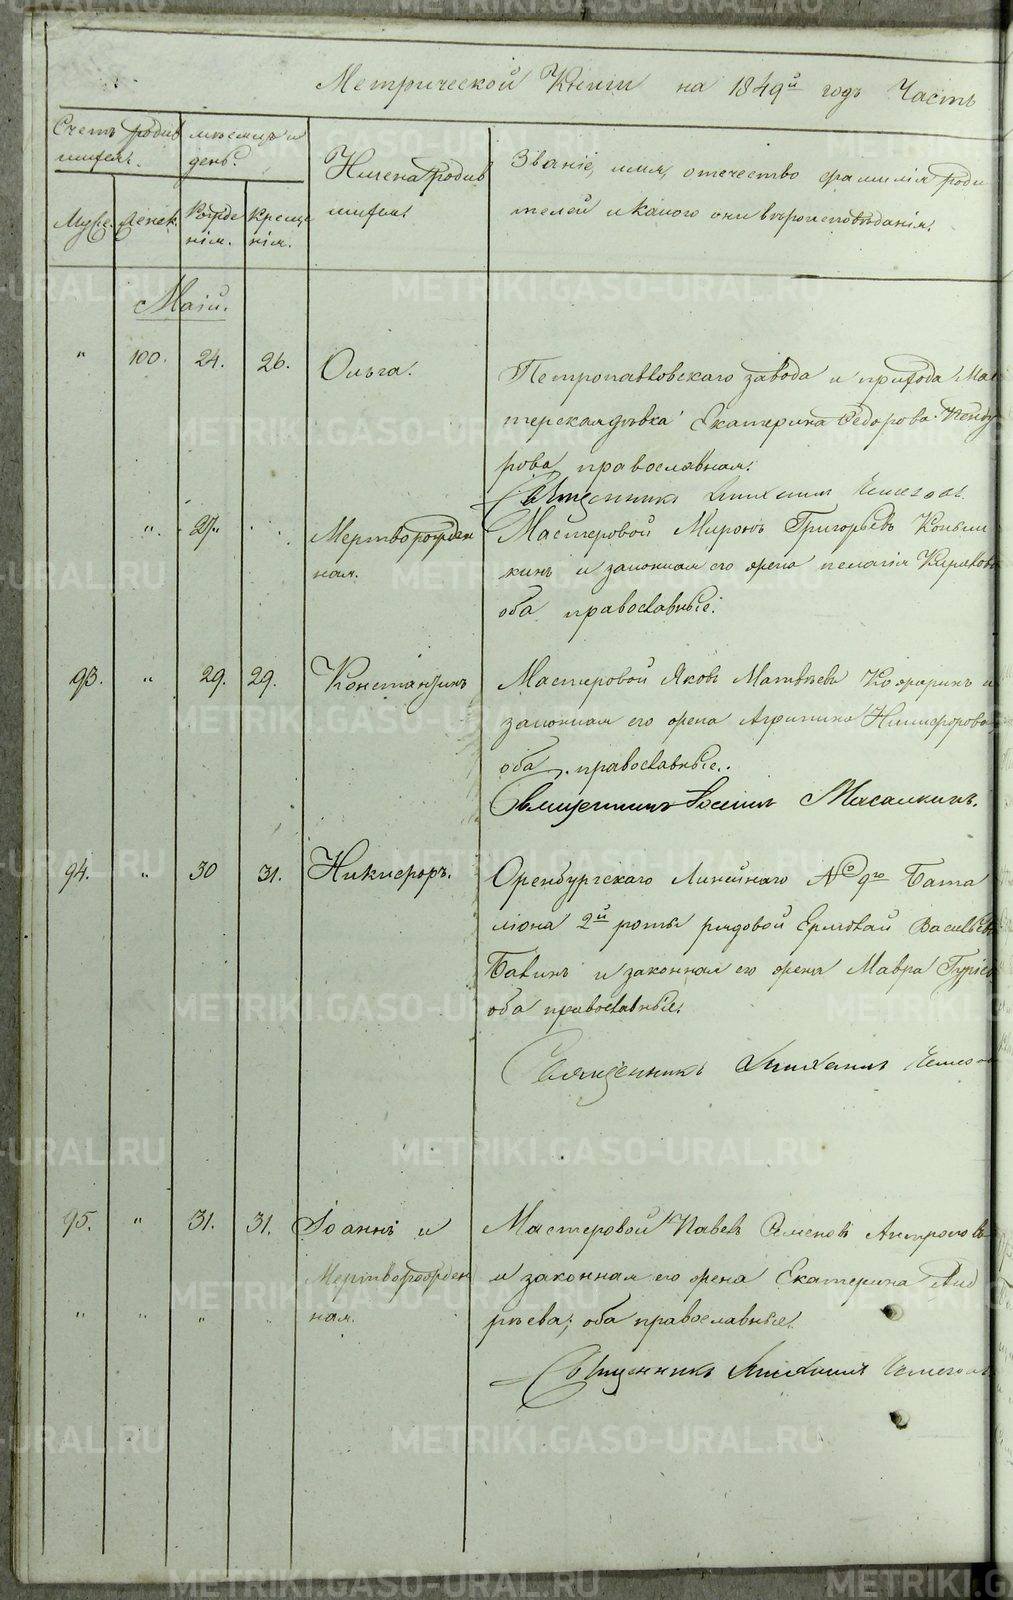 Метрической Книги на 1849й годъ Часть
Счетъ родив мѣсяцъ и
шихся. день.
Имена родив
шихся.
Званіе, имя, отечество фамилія роди
телей и какого они вѣроисповѣданія.
Муж. Женск. Рожде Креще
нія. нія.
Маій.
" 100. 24. 26. Ольга.
Петропавловскаго завода и прихода Мас
терская дѣвка Екатерина Федорова
рова православная.
Священникъ Михаилъ
" 27. Мерторожден
ная.
Мастеровой Миронъ Григорьевъ
кинъ и законная его жена Пелагія
оба православные.
93. " 29. 29. Константинъ
Мастеровой Яковъ Матвѣевъ и
законная его жена Агрипина Никифорова
оба православные.
Священникъ Іосифъ Масалкинъ.
94. " 30 31. Никифоръ.
Оренбургскаго Линейнаго № 9го Бата
ліона 2й роты рядовой Ермолай Васильевъ
Бабинъ и законная его жена Мавра
оба православные.
Священникъ Михаилъ
95. " 31. 31. Іоаннъ и
Мертворожден
" " " ная.
Мастеровой Павелъ Семеновъ
и законная его жена Екатерина Анд
рѣева; оба православные.
Священникъ Михаилъ
METRIKI.GASO-URAL.RU